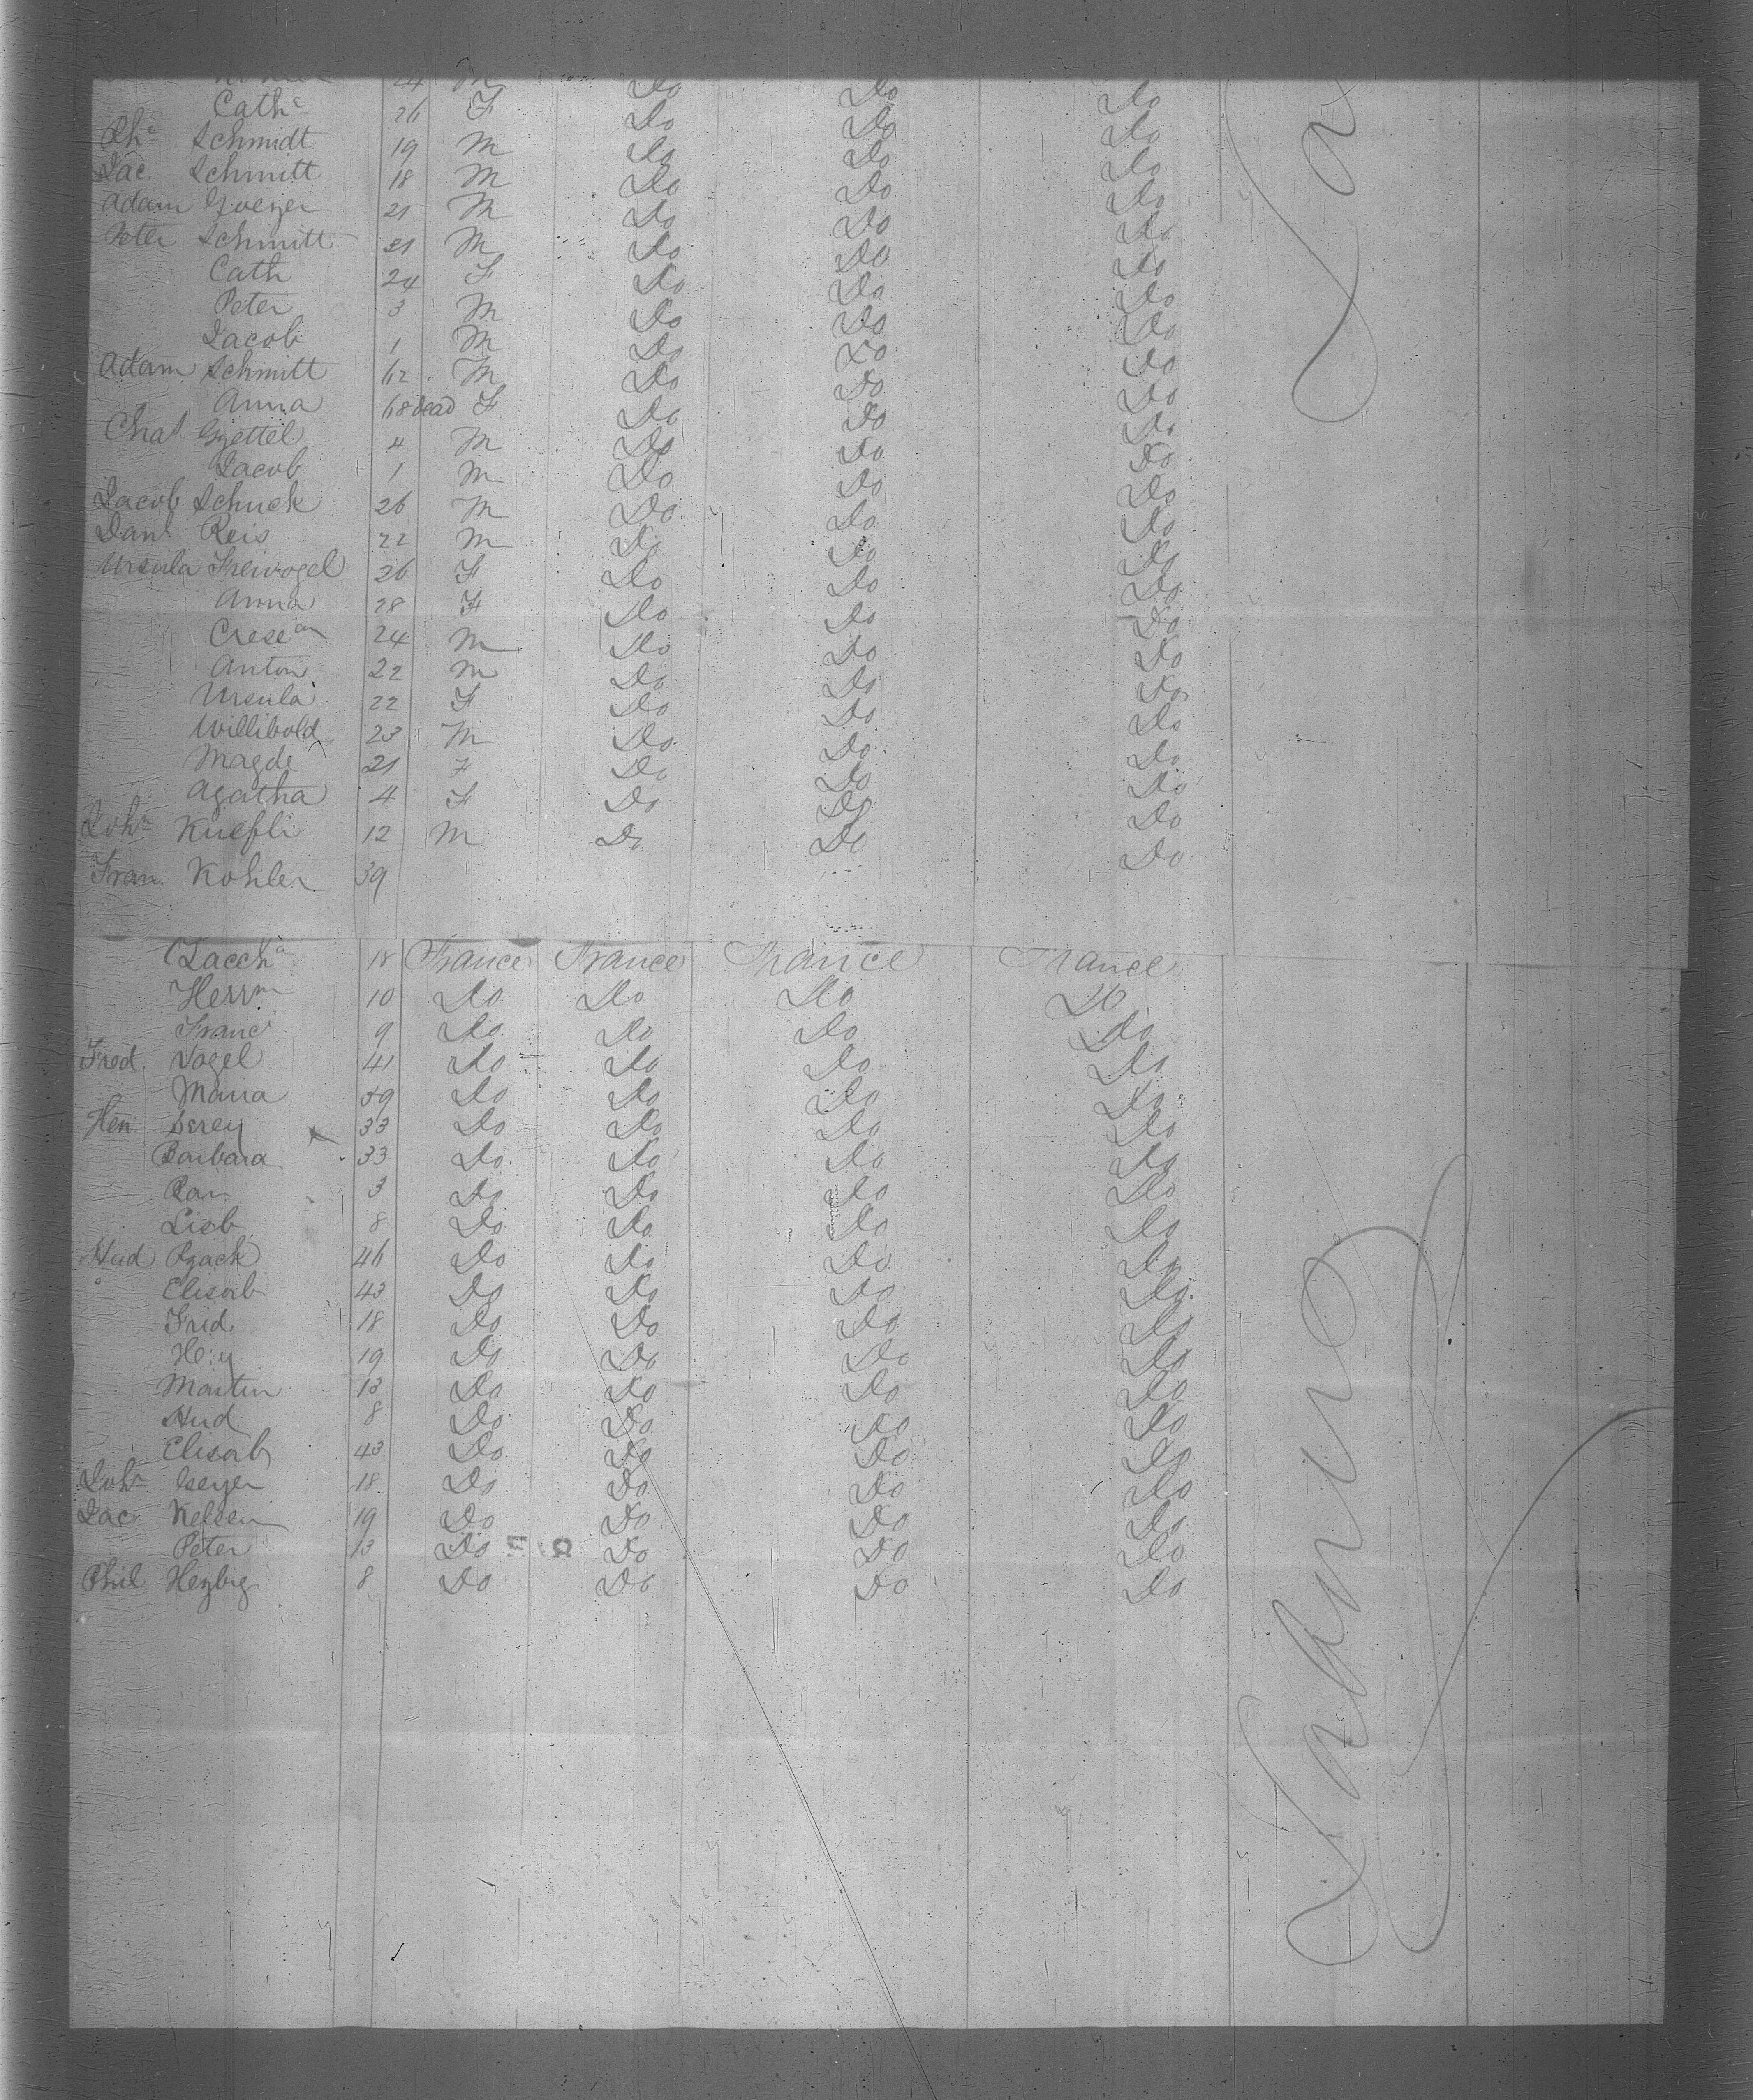 24 M Do Do Do
Cathᵃ 26 F Do Do Do
Phᵉ Schmidt 19 M Do Do Do
Jac. Schmitt 18 M Do Do Do
Adam 21 M Do Do Do
Peter Schmitt 21 M Do Do Do
Cath 24 F Do Do Do
Peter 3 M Do Do Do
Jacob 1 M Do Do Do
Adam Schmitt 62 M Do Do Do
Anna 68 dead F Do Do Do
Chaˢ Gyettel 4 M Do Do Do
Jacob 1 M Do Do Do
Jacob Schuck 26 M Do Do Do
Danˡ Reis 22 M Do Do Do
Ursula Freivogel 26 F Do Do Do
Anna 28 F Do Do Do
24 M Do Do Do
Anton 22 M Do Do Do
Ursula 22 F Do Do Do
Willibold 23 M Do Do Do
Magde 21 F Do Do Do
Agatha 4 F Do Do Do
Johⁿ Knefli 12 M Do Do Do
Fran. Kohler 39
18 France France France France
Herrᵐ 10 Do Do Do Do
Franc 9 Do Do Do Do
Fred. Vogel 41 Do Do Do Do
Maria 39 Do Do Do Do
Hen Serey 33 Do Do Do Do
Barbara 33 Do Do Do Do
3 Do Do Do Do
Lisb. 8 Do Do Do Do
46 Do Do Do Do
Elisab 43 Do Do Do Do
Frid. 18 Do Do Do Do
Hey 19 Do Do Do Do
Martin 13 Do Do Do Do
8 Do Do Do Do
Elisab 43 Do Do Do Do
Johⁿ Geyer 18 Do Do Do Do
Jac. Kelsen 19 Do Do Do Do
Peter 13 Do Do Do Do
Phil Heyberg 8 Do Do Do Do